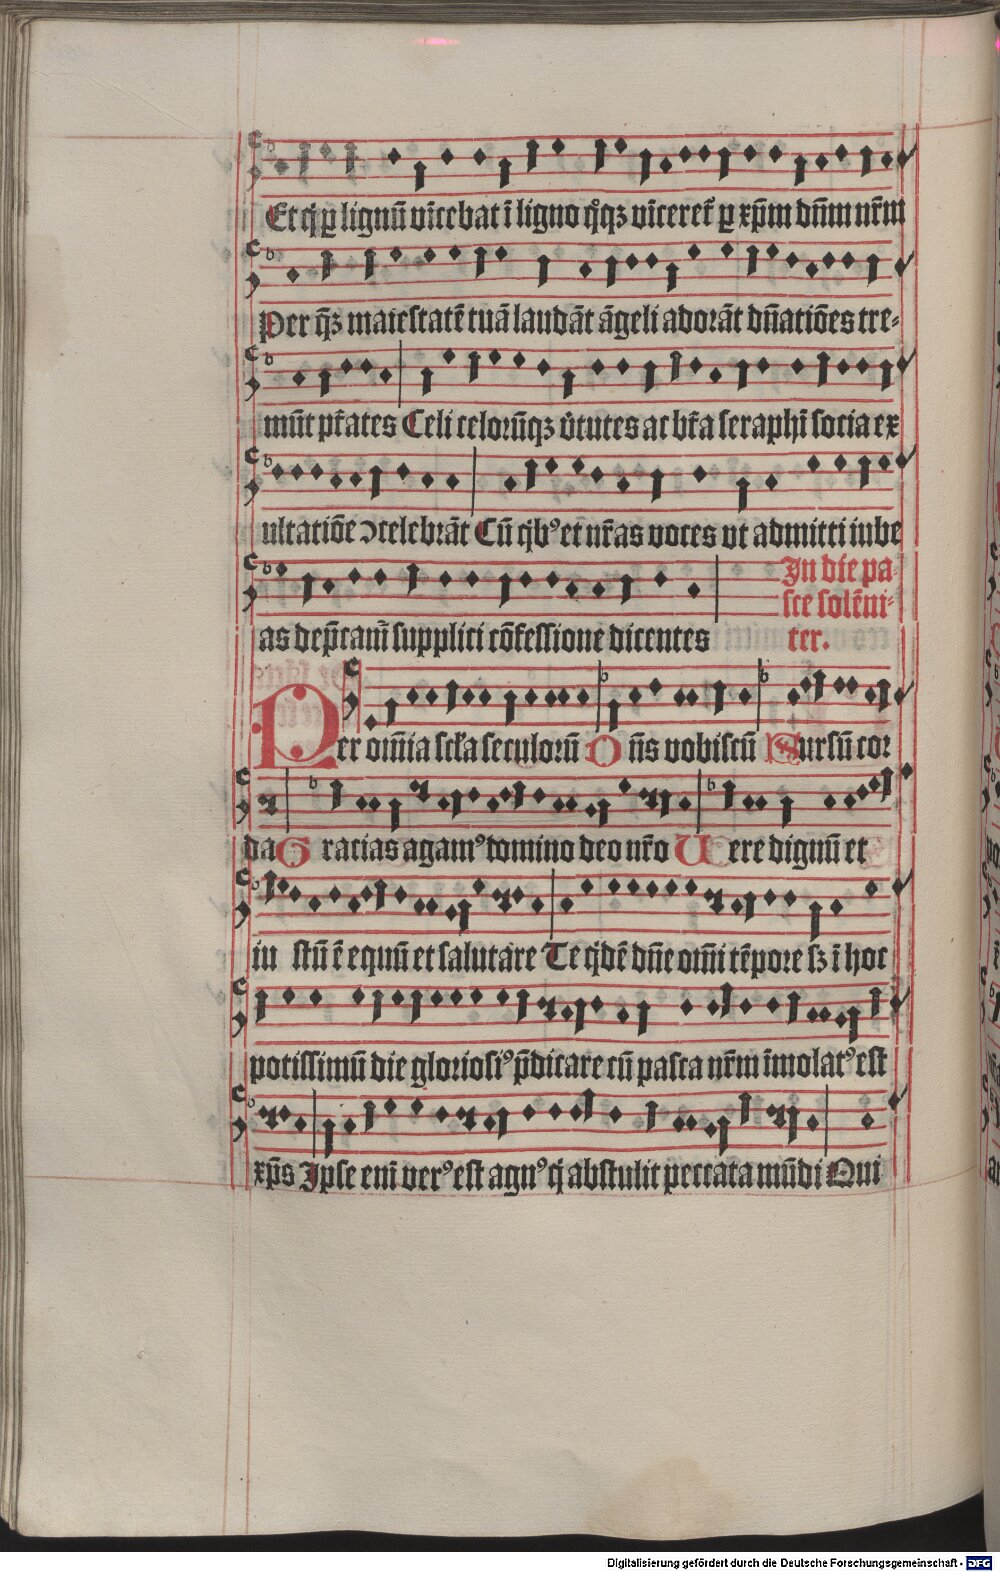 Et qi ꝑ lignū vīcebat ī ligno qͦqꝫ vīceretʳ ꝑ xp̄m dn̄m nr̄m
Per q̄ꝫ maiestatē tuā laudāt āgeli adorāt dn̄atiōes tre⸗
mūt pt̄ates Celi celorūqꝫ v̓tutes ac bt̄a seraphī socia ex
ultatiōe ↄcelebrāt Cū qi̇bꝰ et nr̄as voces vt admitti iube
as dep̄camʳ supplici cōfessione dicentes
In die pa⸗
sce solēni⸗
ter.
Per om̄ia scl̄a seculorū Dn̄s vobiscū Sursū cor
da Gracias agamꝰ domino deo nr̄o Uere dignū et
iustū ē equū et salutare Te qi̇dē dn̄e om̄i tēpore sꝫ ī hoc
potissimū die gloriosiꝰ p̄dicare cū pasca nr̄m īmolatꝰ est
xp̄s Ipse enī verꝰ est agnꝰ qi abstulit peccata mūdi Qui
Digitalisierung gefördert durch die Deutsche Forschungsgemeinschaft - DFG